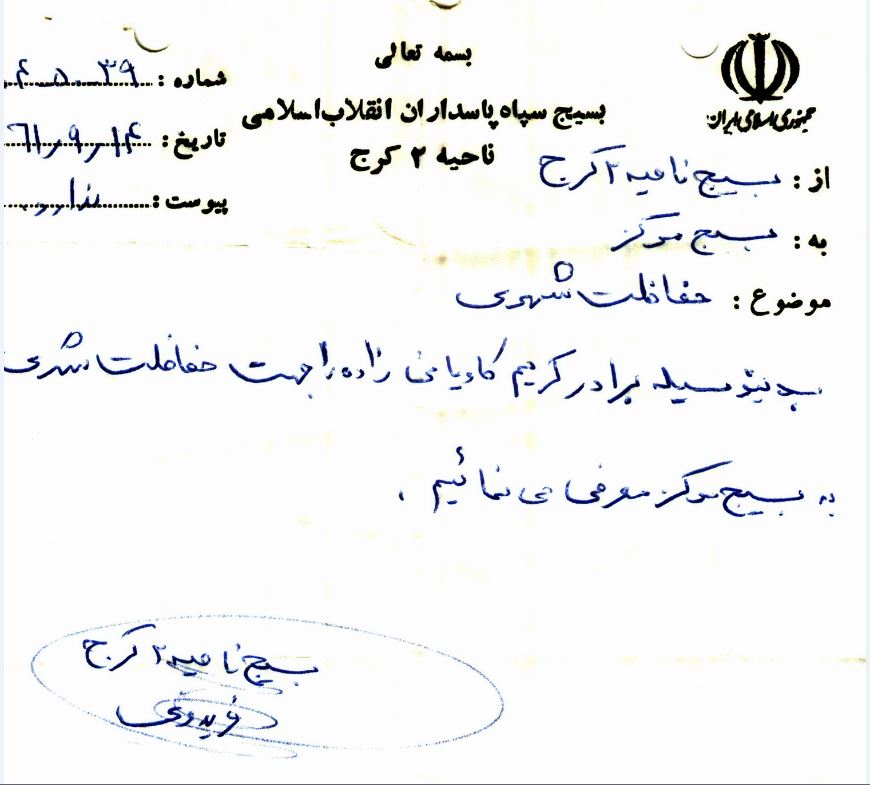 بسمه تعالی
بسیج سپاه پاسداران انقلاب اسلامی
ناحیه ۲ کرج
جمهوری اسلامی ایران
شماره : ۳۹ـ۵ـ۴
تاریخ : ۱۴ر۹ر۶۱
پیوست : ندارد
از : بسیج ناحیه ۲ کرج
به : بسیج مرکز
موضوع : حفاظت شهری
بدینوسیله برادر کریم کاویانی زاده را جهت حفاظت شهری
به بسیج مرکز معرفی می نمائیم .
بسیج ناحیه ۲ کرج
فریدونی